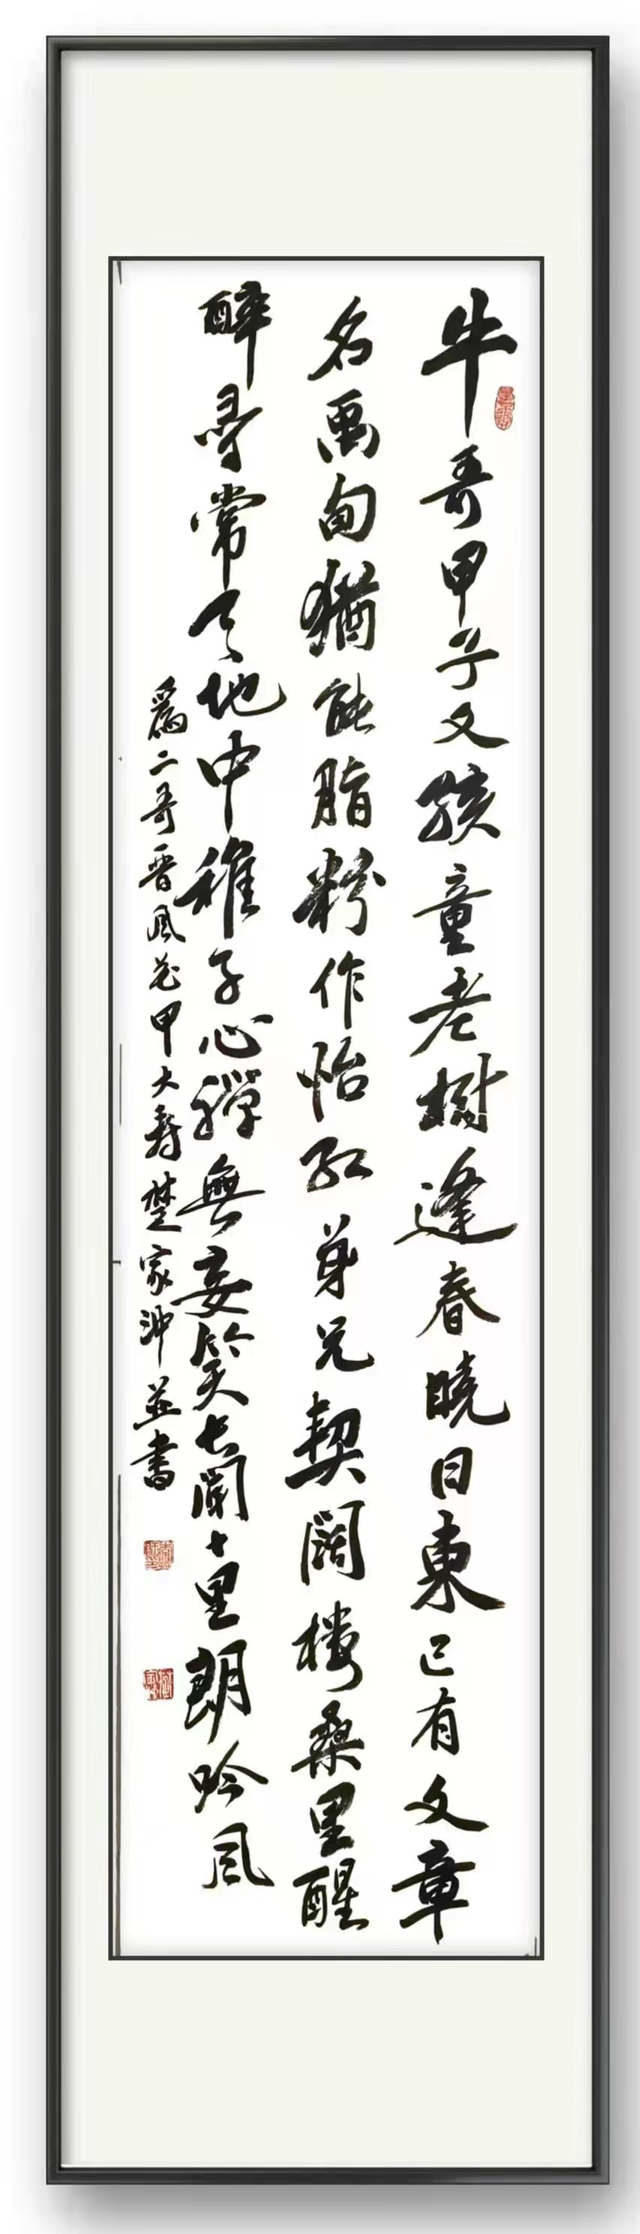 牛哥甲子又孩童老樹逢春曉日東已有文章
名禹甸猶能脂粉作怡紅弟兄契闊樓桑里醒
醉尋常天地中稚子心禪無妄笑長聞十里朗吟風
為二哥晉風花甲大壽楚家沖並書